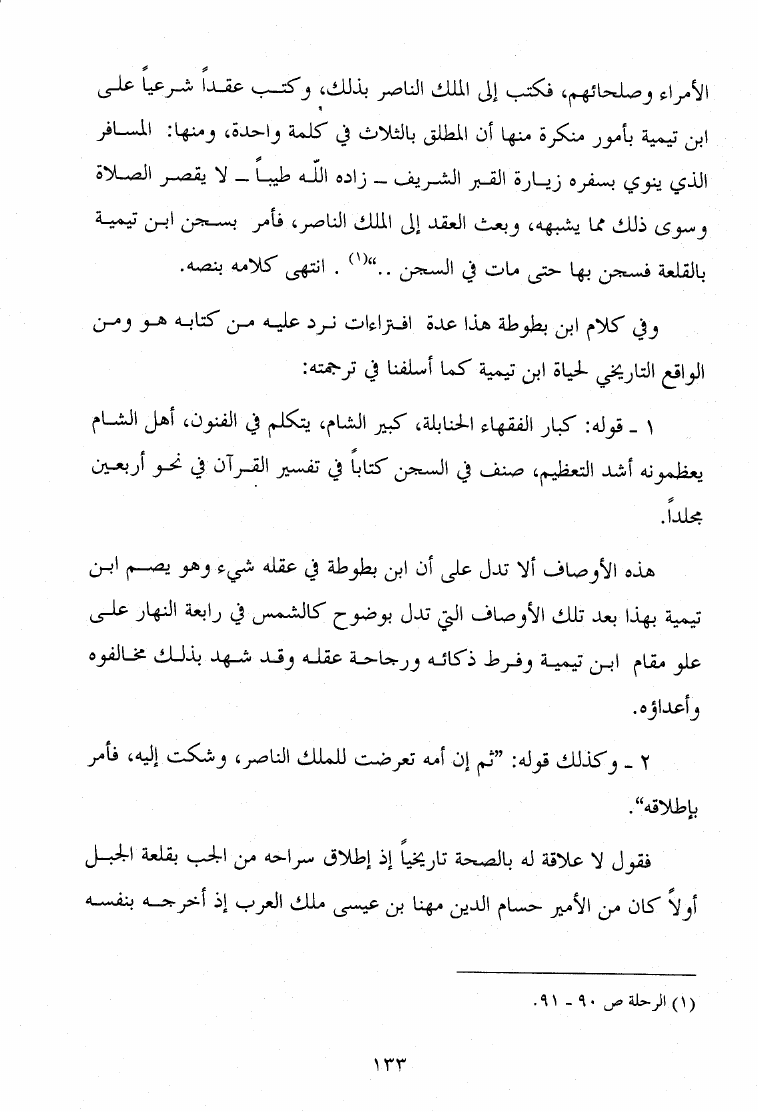 الأمراء وصلحائهم، فكتب إلى الملك الناصر بذلك، وكتب عقداً شرعياً على
ابن تيمية بأمور منكرة منها أن المطلق بالثلاث في كلمة واحدة، ومنها: المسافر
الذي ينوي بسفره زيارة القبر الشريف ـ زاده الله طيباً ـ لا يقصر الصلاة
وسوى ذلك مما يشبهه، وبعث العقد إلى الملك الناصر، فأمر بسجن ابن تيمية
بالقلعة فسجن بها حتى مات في السجن ..“(١) . انتهى كلامه بنصه.
وفي كلام ابن بطوطة هذا عدة افتراءات نرد عليه من كتابه هو ومن
الواقع التاريخي لحياة ابن تيمية كما أسلفنا في ترجمته:
١ ـ قوله: كبار الفقهاء الحنابلة، كبير الشام، يتكلم في الفنون، أهل الشام
يعظمونه أشد التعظيم، صنف في السجن كتاباً في تفسير القرآن في نحو أربعين
مجلداً.
هذه الأوصاف ألا تدل على أن ابن بطوطة في عقله شيء وهو يصم ابن
تيمية بهذا بعد تلك الأوصاف التي تدل بوضوح كالشمس في رابعة النهار على
علو مقام ابن تيمية وفرط ذكائه ورجاحة عقله وقد شهد بذلك مخالفوه
وأعداؤه.
٢ ـ وكذلك قوله: ”ثم إن أمه تعرضت للملك الناصر، وشكت إليه، فأمر
بإطلاقه“.
فقول لا علاقة له بالصحة تاريخياً إذ إطلاق سراحه من الجب بقلعة الجبل
أولاً كان من الأمير حسام الدين مهنا بن عيسى ملك العرب إذ أخرجه بنفسه
(١) الرحلة ص ٩٠ ـ ٩١.
١٣٣